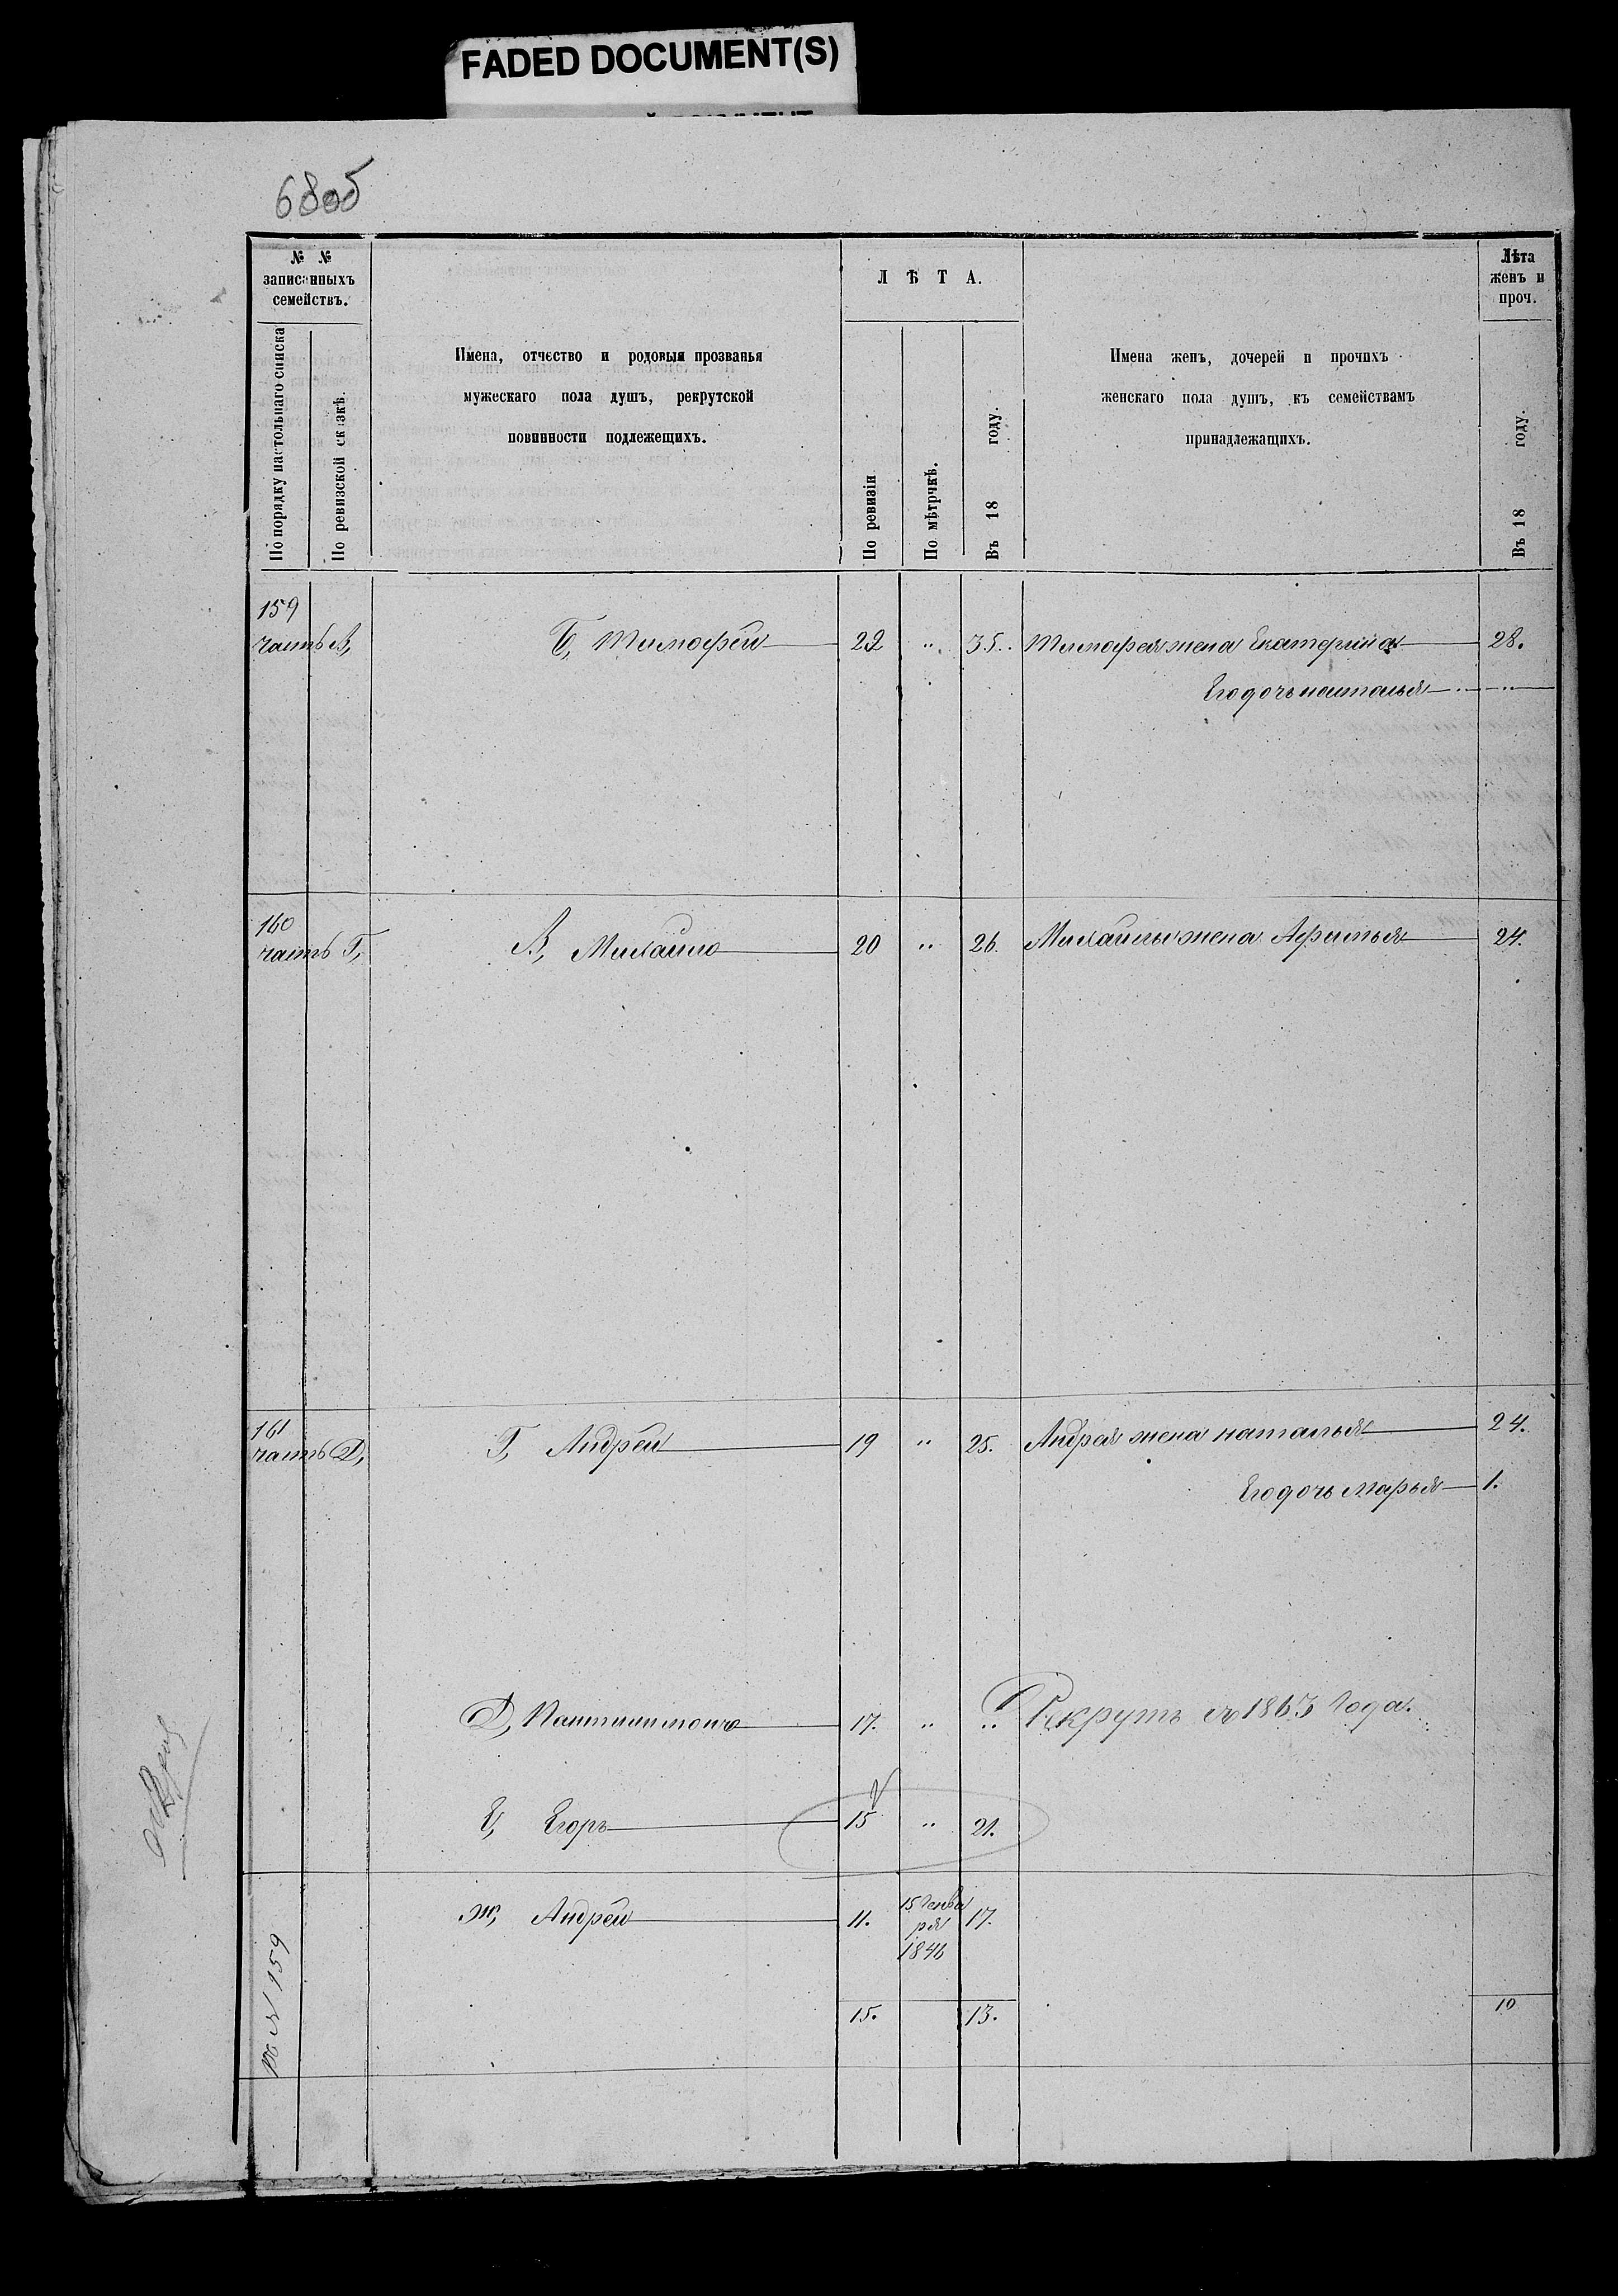 FADED DOCUMENT(S)
68об
№ №
записанныхъ
семействъ.
По порядку настольнаго списка
По ревизской сказкѣ.
Имена, отчество и родовыя прозванья
мужескаго пола душъ, рекрутской
повинности подлежещихъ.
Л Ѣ Т А.
По ревизіи
По мѣтрчкѣ.
Въ 18 году.
Имена женъ, дочерей и прочихъ
женскаго пола душъ, къ семействамъ
принадлежащихъ.
Лѣта
женъ и
проч.
Въ 18 году.
159
часть В,
Б, Тимофей 22 " 35. Тимофея жена Екатерина 28.
Его дочь наталья " "
160
часть Г,
В, Михайло 20 " 26. Михайлы жена Афимья 24.
161
часть Д,
Г, Андрей 19 " 25. Андрея жена наталья 24.
Его дочь марья 1.
Д, 17. " " Рекрутъ съ 1863 Года.
Е, Егоръ 15 " 21.
Ж, Андрей 11. 15 Генва
ря
1846 17.
159
15. 13. 10